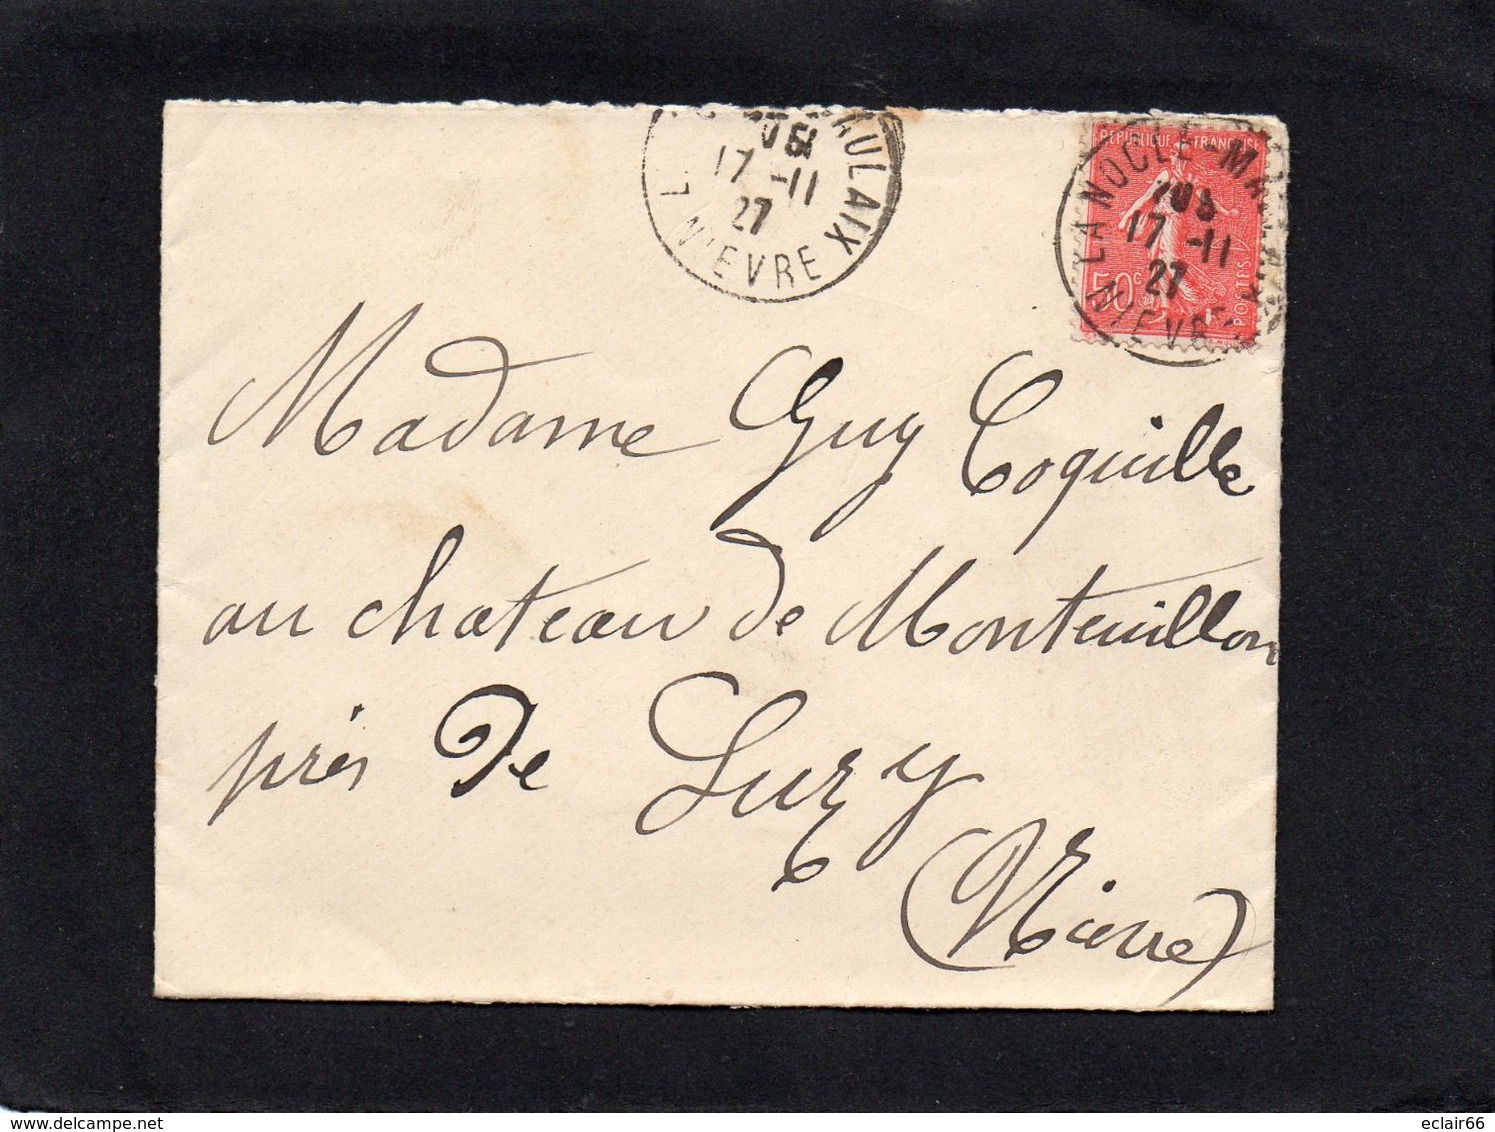 AULAIX
17 -11
27
NIEVRE
REPUBLIQUE FRANÇAISE
LA NOCLE-MA
17 -11
27
NIEVRE
50c
POSTES
Madame Guy Coquille
au chateau de Monteuillon
près de Luzy
(Nièvre)
delcampe.net
eclair66